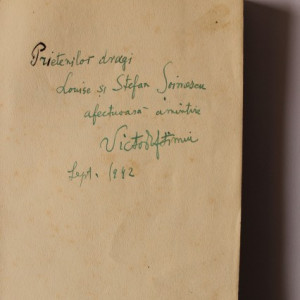 Prietenilor dragi
Louise și Stefan Soinescu
afectuoasă amintire
Victor Eftimiu
Sept. 1942